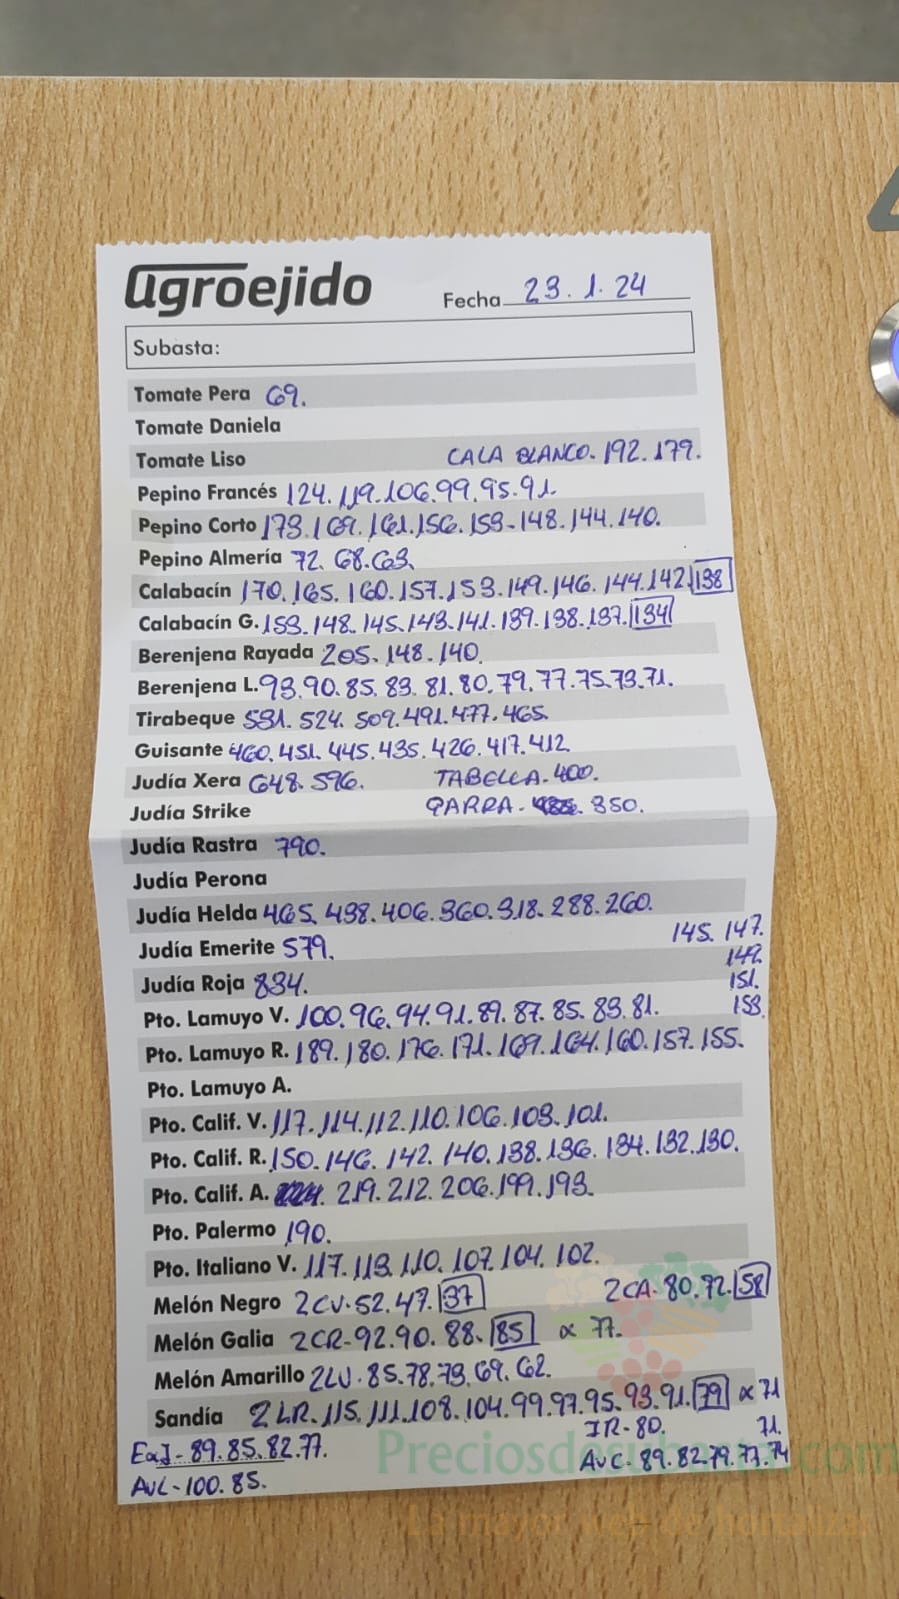 agroejido
Fecha 23.1.24
Subasta:
Tomate Pera 69.
Tomate Daniela
Tomate Liso CALA BLANCO. 192.179.
Pepino Francés 124.119.106.99.95.91.
Pepino Corto 173.169.161.156.153-148.144.140.
Pepino Almería 72.68.63.
Calabacín 170.165.160.157.153.149.146.144.142.138
Calabacín G. 153.148.145.143.141.139.138.137.134
Berenjena Rayada 205.148.140.
Berenjena L. 93.90.85.83.81.80.79.77.75.73.71.
Tirabeque 531.524.509.491.477.465.
Guisante 460.451.445.435.426.417.412
Judía Xera 648.596. TABELLA-400.
Judía Strike GARRA- 350.
Judía Rastra 790.
Judía Perona
Judía Helda 465.438.406.360.318.288.260.
Judía Emerite 579. 145.147.
149.
Judía Roja 834. 151.
Pto. Lamuyo V. 100.96.94.91.89.87.85.83.81. 153.
Pto. Lamuyo R. 189.180.176.171.169.164.160.157.155.
Pto. Lamuyo A.
Pto. Calif. V. 117.114.112.110.106.103.101.
Pto. Calif. R. 150.146.142.140.138.136.134.132.130.
Pto. Calif. A. 219.212.206.199.193.
Pto. Palermo 190.
Pto. Italiano V. 117.113.110.107.104.102.
Melón Negro 2CV-52.47.37 2CA-80.72.58
Melón Galia 2CR-92.90.88.85 ∝ 77.
Melón Amarillo 2LV-85.78.73.69.62.
Sandía 2LR-115.111.108.104.99.97.95.93.91.79 ∝ 71
IR-80. 71.
89.85.82.77. AVC-89.82.79.77.74
AVL-100.85.
Preciosdesubasta.com
La mayor web de hortalizas